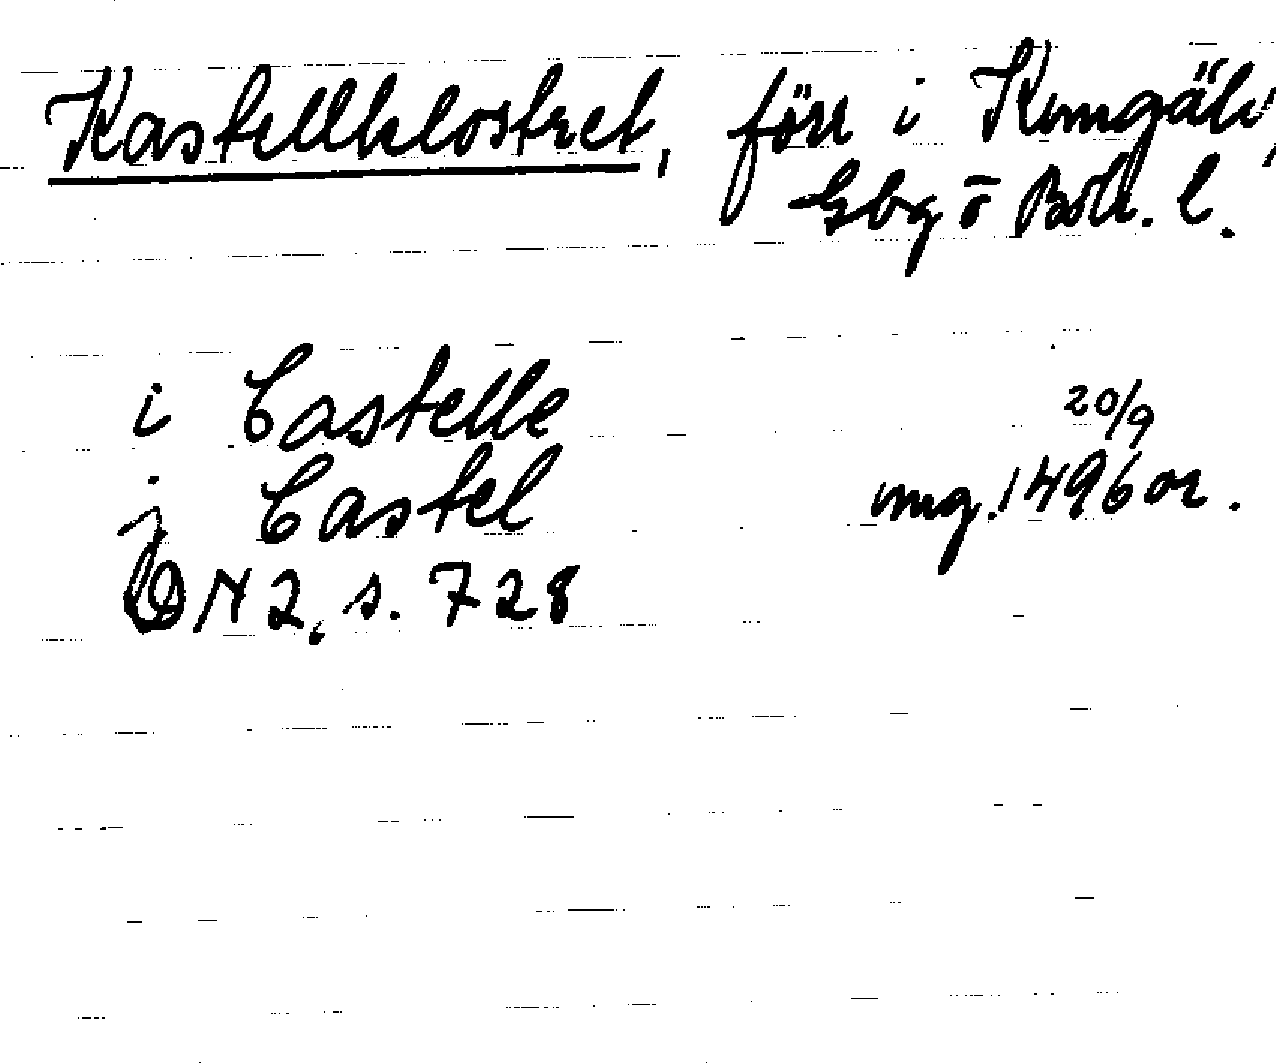 Kastellklostret, förr i Kungälv,
Gbg o Boh. l.
i Castelle 20/9
j Castel omg. 1496 or.
DN 2, s. 728